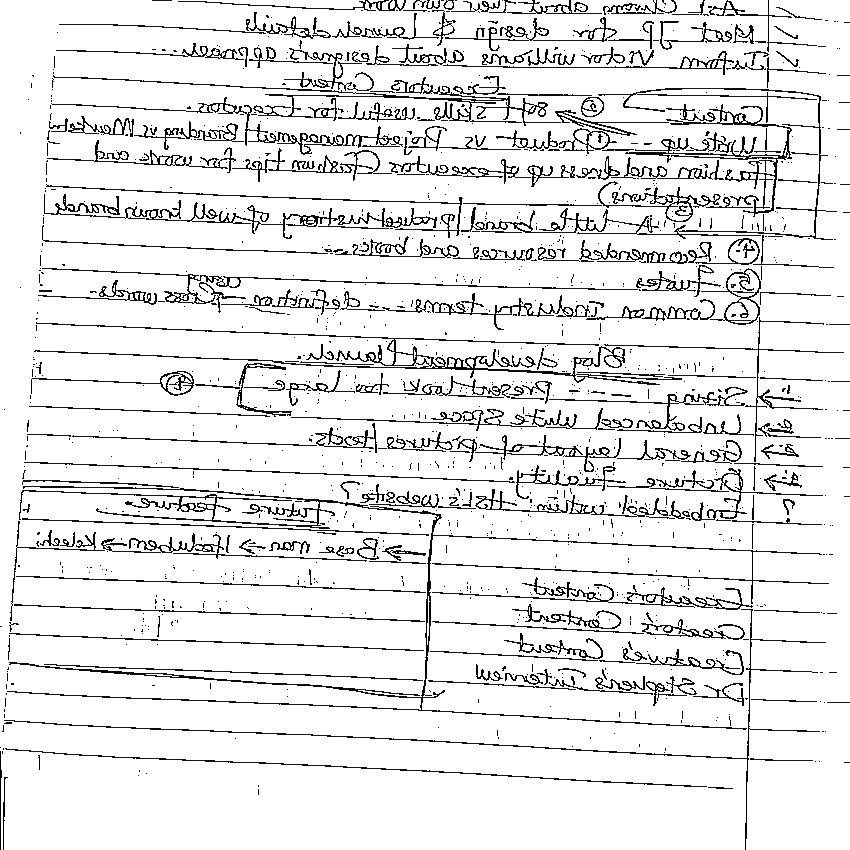 Ask about their own work
✓ Meet JP for design & launch details
✓ Inform Victor Williams about designer's approach...
Executors Content
Content ② Soft skills useful for Executors.
Write up -- ① Product vs Project management/Branding vs Market
Fashion and dress up of executors (Fashion tips for work and
presentations)
③ A little brand/product history of well known brands
④. Recommended resources and books --
⑤. Quotes
⑥. Common Industry terms -- definition using Cross words -
Blog development/launch.
1 → Sizing ---- Present look too large ①
2 → Unbalanced White Space
2 → General layout of pictures/texts.
2 → Picture Quality.
? Embedded within HSL's website?
Future Feature.
→ Base man → Ifechukwu → Kelechi
Executor's Content
Creator's Content
Creative's Content
Dr Stephen's Interview